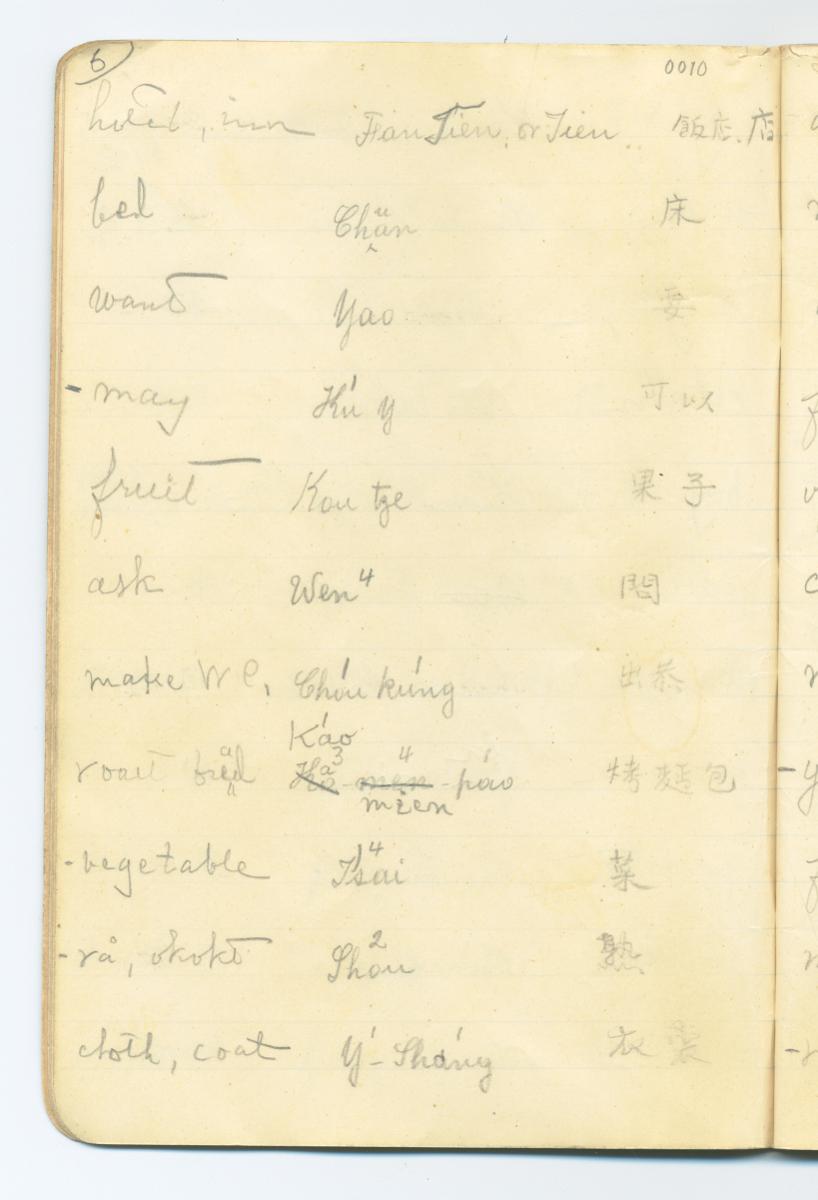 6
0010
hotel, inn Fan Tien, or Tien 飯店, 店
bed Chuän 床
want Yao 要
- may Kú y 可以
fruit Kou tze 果子
ask Wen4 問
make WC, Chóu kúng 出恭
Káo
roast bread men4 páo 烤麵包
mien
- vegetable Tsai4 菜
- rå, okokt Shou2 熟
cloth, coat Ý - Sháng 衣裳